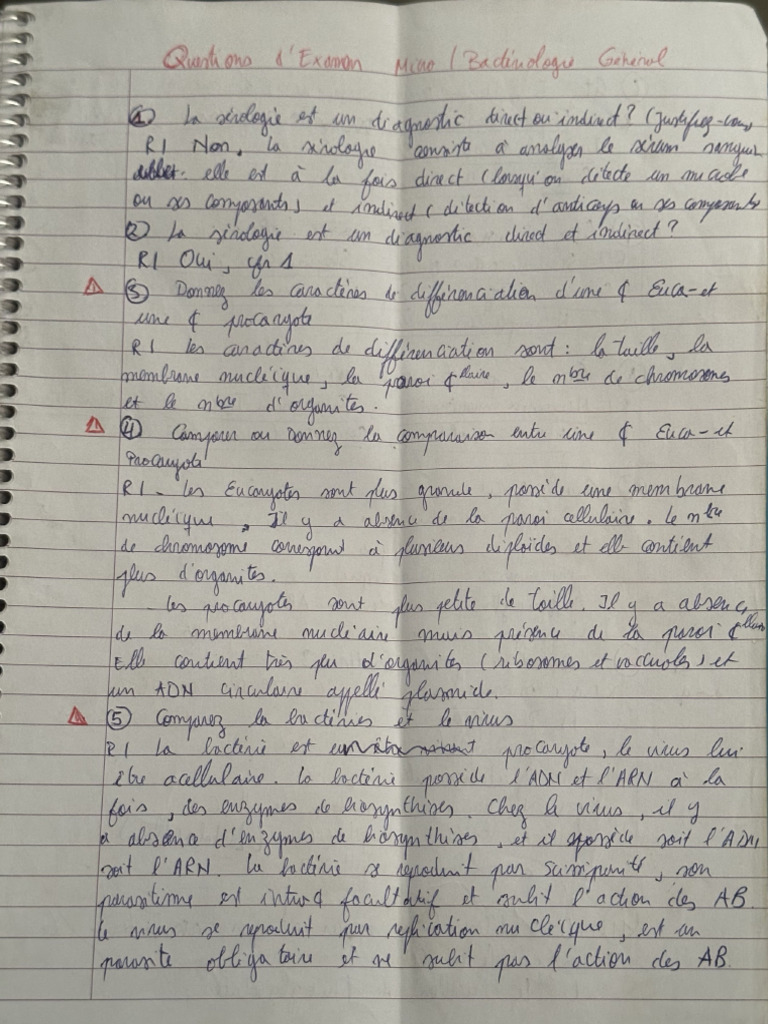 Questions d'Examen Micro / Bactériologie Général
① La sérologie est un diagnostic direct ou indirect? (Justifiez-vous
R/ Non, la sérologie consiste à analyser le sérum sanguin
elle est à la fois direct (lorsqu'on détecte un microbe
ou ses composants) et indirect (détection d'anticorps ou ses composants
② La sérologie est un diagnostic direct et indirect?
R/ Oui, cfr 1
③ Donnez les caractères de différenciation d'une ¢ Euca- et
une ¢ procaryote
R/ les caractères de différenciation sont : la taille, la
membrane nucléique, la paroi ¢llaire, le nbre de chromosomes
et le nbre d'organites.
④ Comparer ou Donnez la comparaison entre une ¢ Euca- et
Procaryote
R/ - Les Eucaryotes sont plus grande, possède une membrane
nucléique, Il y a absence de la paroi cellulaire. Le nbre
de chromosome correspond à plusieurs diploïdes et elle contient
plus d'organites.
- Les procaryotes sont plus petite de taille. Il y a absence
de la membrane nucléaire mais présence de la paroi ¢llaire
Elle contient très peu d'organites (ribosomes et vaccuoles) et
un ADN circulaire appellé plasmide.
⑤ Comparez la bactéries et le virus
R/ La bactérie est procaryote, le virus lui
être acellulaire. La bactérie possède l'ADN et l'ARN à la
fois, des enzymes de biosynthèses. Chez le virus, il y
a absence d'enzymes de biosynthèses, et il possède soit l'ADN
soit l'ARN. La bactérie se reproduit par scissiparité, son
parasitisme est intra ¢ facultatif et subit l'action des AB.
le virus se reproduit par replication nucléique, est un
parasite obligatoire et ne subit pas l'action des AB.